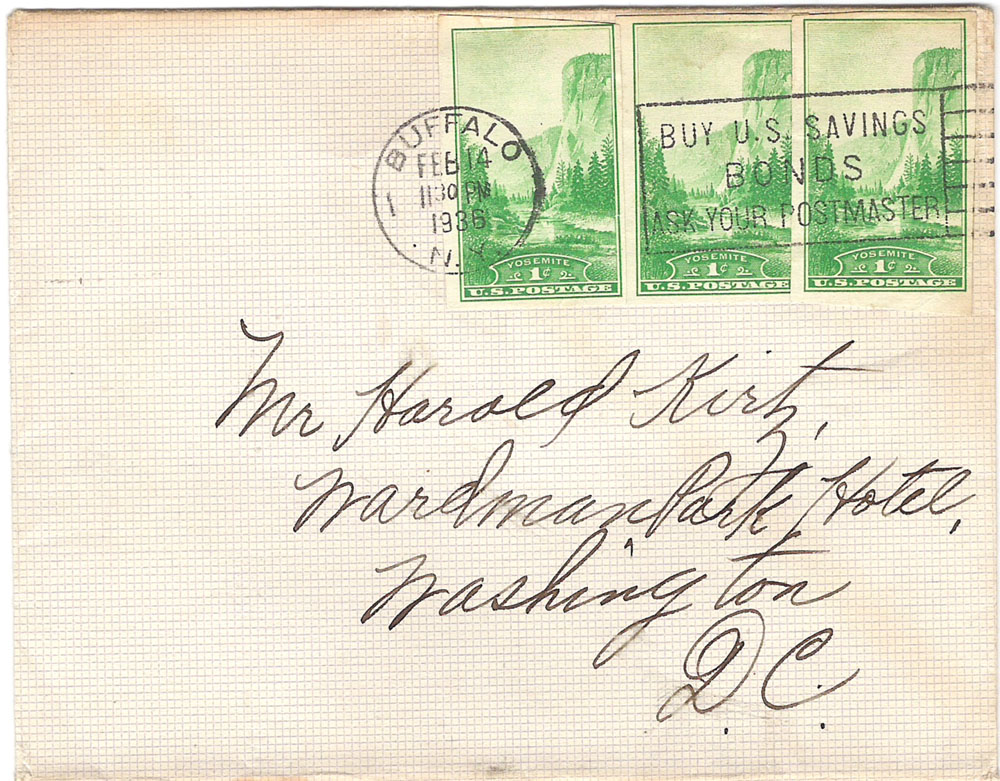 BUFFALO
FEB 14
11 30 PM
1936
N.Y.
1
BUY U.S. SAVINGS
BONDS
ASK YOUR POSTMASTER
YOSEMITE
1¢
U.S. POSTAGE
YOSEMITE
1¢
U.S. POSTAGE
YOSEMITE
1¢
U.S. POSTAGE
Mr Harold Kirtz,
Wardman Park Hotel,
Washington
D.C.